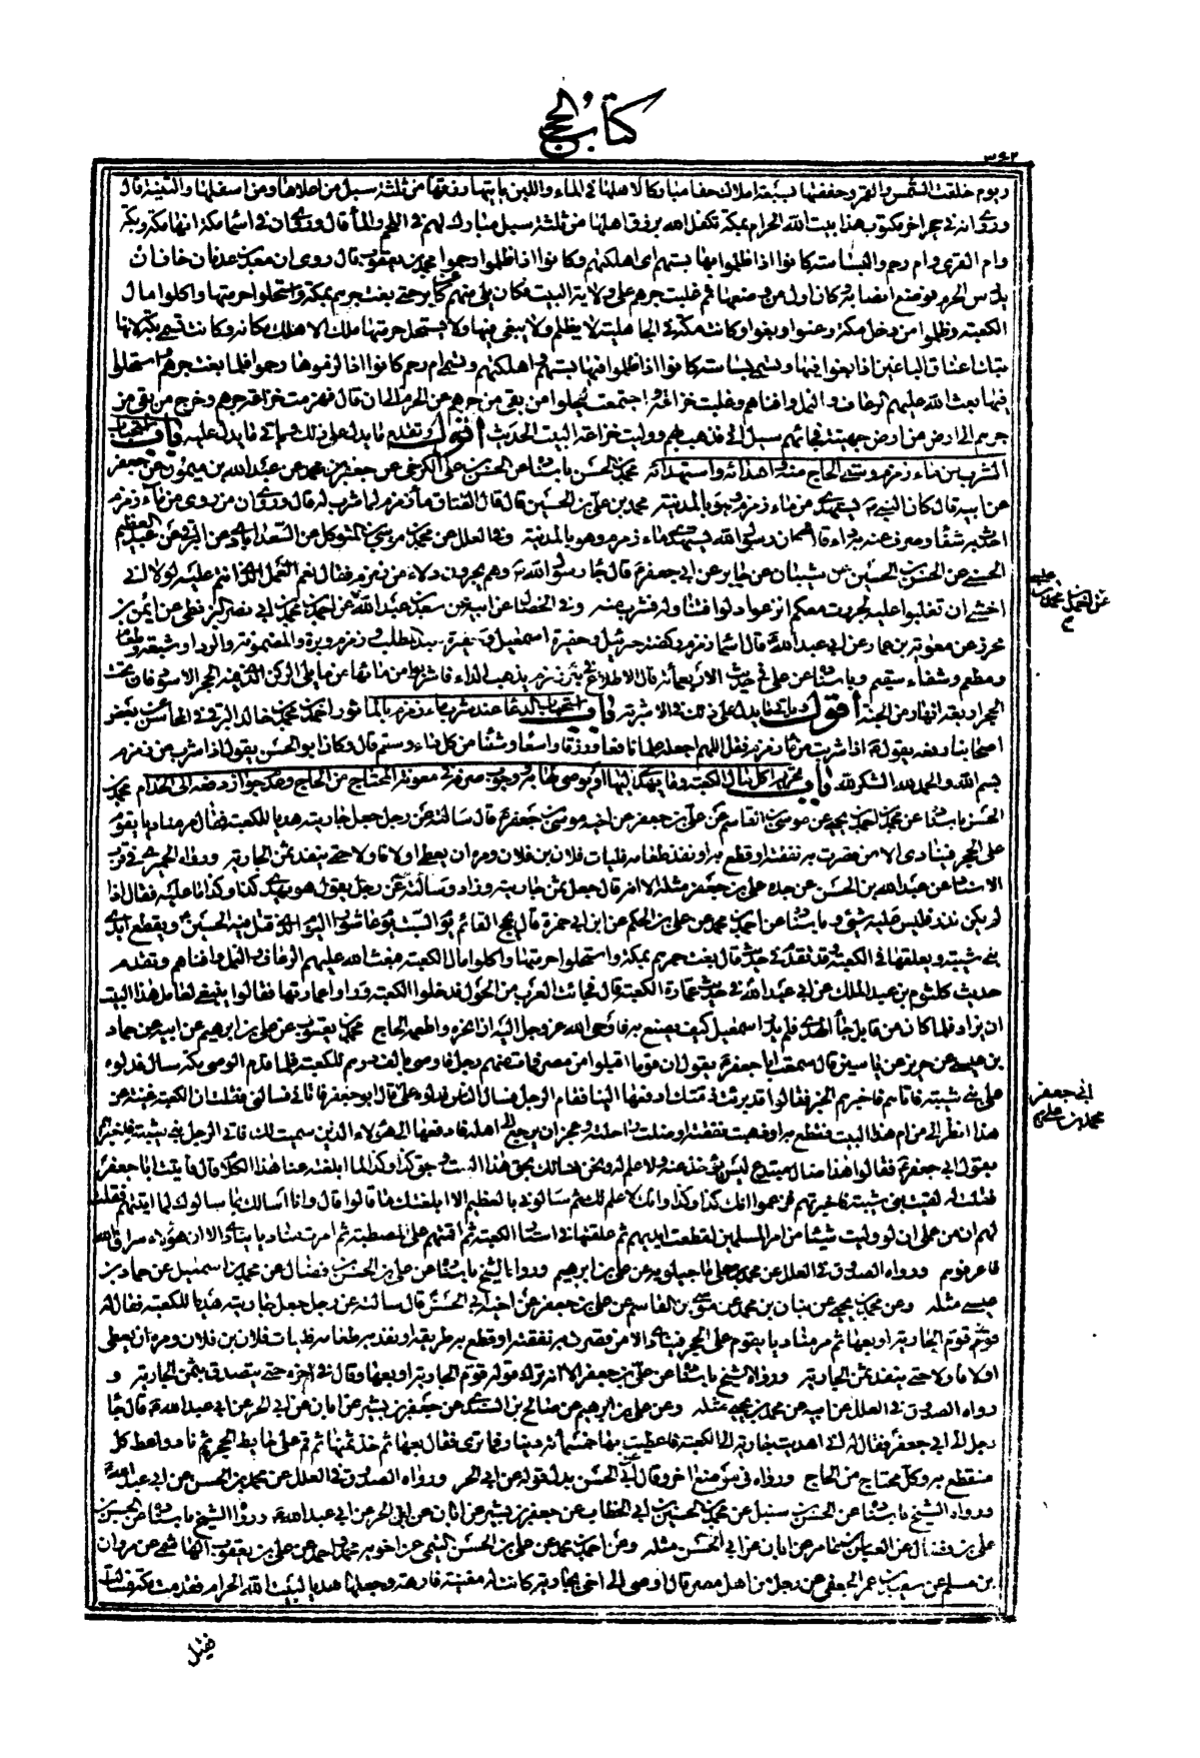 كتاب الحج
٣٤٢
ويوم خلقت الشمس والقمر وحففتها بسبعة املاك حفا مباركا لاهلها فى الماء واللبن ياتيها رزقها من ثلثة سبل من اعلاها ومن اسفلها والثنية قال
وروى انه فى حجر اخر مكتوب هذا بيت الله الحرام بمكة تكفل الله برزق اهلها من ثلثة سبل مبارك لهم فى اللحم والماء قال وروى ان فى اسماء مكة انها مكة وبكة
وام القرى وام رحم والبساسة كانوا اذا ظلموا بها بستهم اى اهلكتهم وكانوا اذا ظلموا رحموا محمد بن يعقوب قال روى ان معد بن عدنان خاف ان
يدرس الحرم فوضع انصابه وكان اول من وضعها ثم غلبت جرهم على ولاية البيت فكان يلى منهم كابر حتى بغت جرهم بمكة واستحلوا حرمتها واكلوا مال
الكعبة وظلموا من دخل مكة وعتوا وبغوا وكانت مكة فى الجاهلية لا يظلم ولا يبغى فيها ولا يستحل حرمتها ملك الا هلك مكانه وكانت تسمى بكة لانها
تبك اعناق الباغين اذا بغوا فيها وتسمى بساسة كانوا اذا ظلموا فيها بستهم واهلكتهم وتسمى ام رحم كانوا اذا لزموها رحموا فلما بغت جرهم واستحلوا
فيها بعث الله عليهم الرعاف والنمل وافناهم وغلبت خزاعة واجتمعت ليجلوا من بقى من جرهم عن الحرم الى ان قال فهزمت خزاعة جرهم وخرج من بقى من
جرهم الى ارض من ارض جهينة فجائهم سيل اتى فذهب بهم ووليت خزاعة البيت الحديث اقول وتقدم ما يدل على ذلك وياتى ما يدل عليه باب استحباب
الشرب من ماء زمزم وسقى الحاج منه واهدائه واستهدائه محمد بن الحسن باسناده عن الحسن بن على الكرخى عن جعفر بن محمد عن عبد الله بن ميمون عن جعفر
عن ابيه قال كان النبى ص يستهدى من ماء زمزم وهو بالمدينة محمد بن على بن الحسين قال قال الصادق ماء زمزم لما شرب له قال وروى ان من روى من ماء زمزم
احدث به شفاء وصرف عنه داء قال وكان رسول الله يستهدى ماء زمزم وهو بالمدينة وفى العلل عن محمد بن موسى بن المتوكل عن السعدابادى عن البرقى عن عبد العظيم
الحسنى عن الحسن بن الحسين عن شيبان عن جابر عن ابى جعفر ع قال جاء رسول الله ص وهم يجرون دلاء من زمزم فقال نعم العمل الذى انتم عليه لولا انى
اخشى ان تغلبوا عليه لجررت معكم انزعوا دلوا فتناوله فشرب منه وفى الخصال عن ابيه عن سعد بن عبد الله عن احمد بن محمد بن ابى نصر البزنطى عن ايمن بن
محرز عن معوية بن عمار عن ابى عبد الله ع قال اسماء زمزم ركضة جبرئيل وحفيرة اسمعيل وحفيرة عبد المطلب وزمزم وبرة والمضمونة والرداء وشبعة وطعام
ومطعم وشفاء سقم وباسناده عن على ع فى حديث الاربعمائة قال الاطلاع فى بئر زمزم يذهب الداء فاشربوا من مائها مما يلى الركن الذى فيه الحجر الاسود فان تحت
الحجر اربعة انهار من الجنة اقول وياتى ما يدل على ذلك فى الاشربة باب استحباب الدعاء عند شرب ماء زمزم بالماثور احمد بن محمد بن خالد البرقى فى المحاسن عن بعض
اصحابنا رفعه يقول اذا شربت من ماء زمزم فقل اللهم اجعله علما نافعا ورزقا واسعا وشفاء من كل داء وسقم قال وكان ابو الحسن يقول اذا شرب من زمزم
بسم الله والحمد لله الشكر لله باب تحريم اكل مال الكعبة وما يهدى اليها او يوصى لها به ووجوب صرفه فى معونة المحتاج من الحاج وعدم جواز دفعه الى الخدام محمد بن
الحسن باسناده عن محمد بن احمد بن يحيى عن موسى بن القاسم عن على بن جعفر عن اخيه موسى بن جعفر ع قال سالته عن رجل جعل جاريته هديا للكعبة فقال مر مناديا يقوم
على الحجر فينادى الا من قصرت به نفقته او قطع به او نفد طعامه فليات فلان بن فلان ومره ان يعطى اولا فاولا حتى ينفد ثمن الجارية ورواه الحميرى فى قرب
الاسناد عن عبد الله بن الحسن عن جده على بن جعفر مثله الا انه قال جعل ثمن جاريته وزاد وسالته عن رجل يقول هو يهدى كذا وكذا ما عليه فقال اذا
لم يكن نذر فليس عليه شئ وباسناده عن احمد بن محمد عن على بن الحكم عن ابن ابى حمزة قال يخرج القائم يوم السبت يوم عاشورا اليوم الذى قتل فيه الحسين ع ويقطع ايدى
بنى شيبة ويعلقها فى الكعبة وقد تقدم فى حديث قال بغت جرهم بمكة واستحلوا حرمتها واكلوا مال الكعبة فبعث الله عليهم الرعاف والنمل وافناهم وتقدم
حديث كلثوم بن عبد الملك عن ابى عبد الله ع فى حديث عمارة الكعبة قال فجائت العرب من الحول فدخلوا الكعبة وراوا عمارتها فقالوا ينبغى لعامل هذا البيت
ان يزاد فلما كان من قابل جاء الهدى فلم يدر اسمعيل كيف يصنع به فاوحى الله عز وجل اليه ان انحره واطعمه الحاج محمد بن يعقوب عن على بن ابراهيم عن ابيه عن حماد
بن عيسى عن حريز عن ياسين قال سمعت ابا جعفر ع يقول ان قوما اقبلوا من مصر فمات منهم رجل فاوصى بالف درهم للكعبة فلما قدم الوصى مكة سال فدلوه
على بنى شيبة فاتاهم فاخبرهم الخبر فقالوا قد برئت ذمتك ادفعها الينا فقام الرجل فسال الناس فدلوه على ابى جعفر قال ابو جعفر فاتانى فسالنى فقلت ان الكعبة غنية عن
هذا انظر الى من ام هذا البيت فقطع به او ذهبت نفقته او ضلت راحلته وعجز ان يرجع الى اهله فادفعها الى هؤلاء الذين سميت لك فاتى الرجل بنى شيبة فاخبرهم
بقول ابى جعفر ع فقالوا هذا ضال مبتدع ليس يؤخذ عنه ولا علم له ونحن نسالك بحق هذا البيت وبحق كذا وكذا لما ابلغته عنا هذا الكلام قال فاتيت ابا جعفر ع
فقلت له لقيت بنى شيبة فاخبرتهم فزعموا انك كذا وكذا وانك لا علم لك ثم سالونى بالعظيم الا ابلغتك ما قالوا قال وانا اسالك بما سالوك لما اتيتهم فقلت
لهم ان من علمى ان لو وليت شيئا من امر المسلمين لقطعت ايديهم ثم علقتها فى استار الكعبة ثم اقمتهم على المصطبة ثم امرت مناديا ينادى الا ان هؤلاء سراق الله
فاعرفوهم ورواه الصدوق فى العلل عن محمد بن على ماجيلويه عن على بن ابراهيم ورواه الشيخ باسناده عن على بن الحسن بن فضال عن محمد بن اسمعيل عن حماد بن
عيسى مثله وعن محمد بن يحيى عن بنان بن محمد عن موسى بن القاسم عن على بن جعفر عن اخيه ابى الحسن ع قال سالته عن رجل جعل جاريته هديا للكعبة فقال له
قوم الجارية او بعها ثم مر مناديا يقوم على الحجر فينادى الا من قصرت به نفقته او قطع به طريقه او نفد به طعامه فليات فلان بن فلان ومره ان يعطى
اولا فاولا حتى ينفد ثمن الجارية ورواه الشيخ باسناده عن على بن جعفر الا انه ترك قوله قوم الجارية او بعها وقال فى اخره حتى يتصدق بثمن الجارية و
رواه الصدوق فى العلل عن ابيه عن محمد بن يحيى مثله وعن على بن ابراهيم عن صالح بن السندى عن جعفر بن بشير عن ابان عن ابى الحر عن ابى عبد الله ع قال جاء
رجل الى ابى جعفر فقال له انى اهديت جارية الى الكعبة فاعطيت بها خمسمائة دينار فما ترى فقال بعها ثم خذ ثمنها ثم قم على حائط الحجر ثم ناد واعط كل
منقطع به وكل محتاج من الحاج ورواه فى موضع اخر وقال ابى الحسن بدل قوله عن ابى الحر ورواه الصدوق فى العلل عن محمد بن الحسن عن ابى عبد الله
ورواه الشيخ باسناده عن الحسن بن سنبل عن محمد بن الحسين بن ابى الخطاب عن جعفر بن بشير عن ابان عن ابى الحر عن ابى عبد الله ع ورواه الشيخ باسناده عن الحسن بن
على بن فضال عن العباس بن عامر عن ابان عن ابى الحسن مثله وعن احمد بن محمد عن على بن الحسن التيمى عن اخويه محمد واحمد عن على بن يعقوب الهاشمى عن مروان
بن مسلم عن سعيد بن عمر الجعفى عن رجل من اهل مصر قال اوصى الى اخى بجارية كانت له مغنية فارهة وجعلها هديا لبيت الله الحرام فقدمت مكة فسالت
ابى جعفر
محمد بن على
فقيل